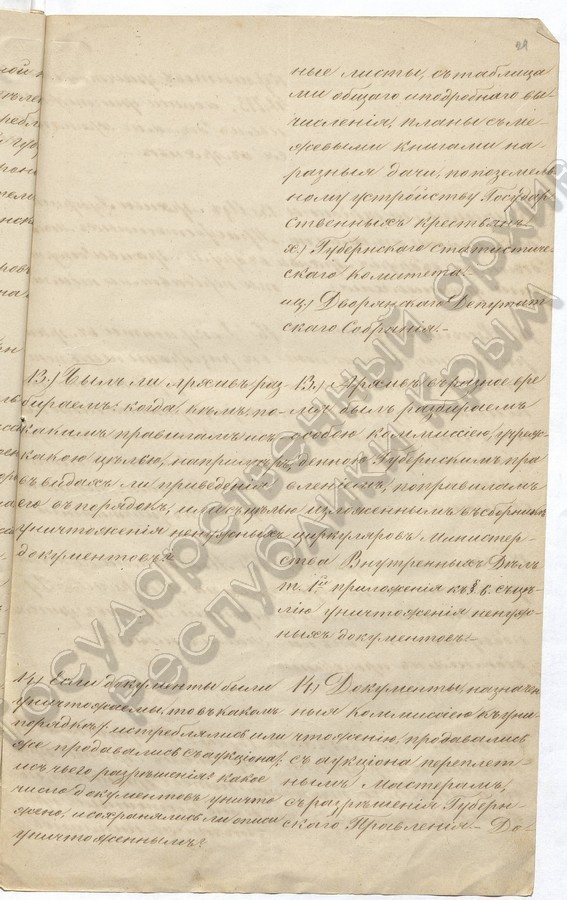 29
ные листы, съ таблица
ми общаго и подробнаго вы
численія, планы съ ме
жевыми книгами на
разныя дачи, по поземель
ному устройству Государ
ственныхъ крестьянъ.
х.) Губернскаго статистиче
скаго комитета.
ц.) Дворянскаго Депутат
скаго Собранія.-
13.) Былъ ли Архивъ раз
бираемъ: когда, кѣмъ, по
какимъ правиламъ и съ
какою цѣлью, напримѣръ,
въ видахъ ли приведенія
его въ порядокъ, или съ цѣлью
уничтоженія ненужныхъ
документовъ?
13.) Архивъ въ разное вре
мя былъ разбираемъ
особою коммисіею, учреж
денною Губернскимъ пра
вленіемъ, по правиламъ
изложеннымъ въ сборникѣ
циркуляровъ Министер
ства Внутреннихъ Дѣлъ
т. 1й приложенія къ § 6. съ цѣ
лію уничтоженія ненуж
ныхъ документовъ.-
14.) Если документы были
уничтожаемы, то въ какомъ
порядкѣ, истреблялись или
же продавались съ аукціона,
и съ чьего разрѣшенія? какое
число документовъ уничто
жено, и сохранялись ли описи
уничтоженнымъ?
14.) Документы, назначен
ныя коммисіею къ уни
чтоженію, продавались
съ аукціона переплет
нымъ мастерамъ,
съ разрѣшенія Губерн
скаго Правленія.- До-
Государственный архив
Республики Крым